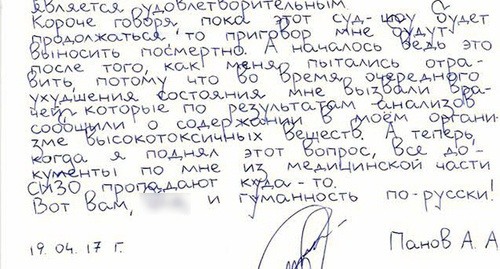 является удовлетворительным
Короче говоря пока этот суд-шоу будет
продолжаться то приговор мне будут
выносить посмертно. А началось ведь это
после того, как меня пытались отра-
вить, потому что во время очередного
ухудшения состояния мне вызвали вра-
чей, которые по результатам анализов
сообщили о содержании в моём органи-
зме высокотоксичных веществ. А теперь,
когда я поднял этот вопрос, все до-
кументы по мне из медицинской части
СИЗО пропадают куда-то.
Вот Вам, и гуманность по-русски!
19.04.17 г. Панов А. А